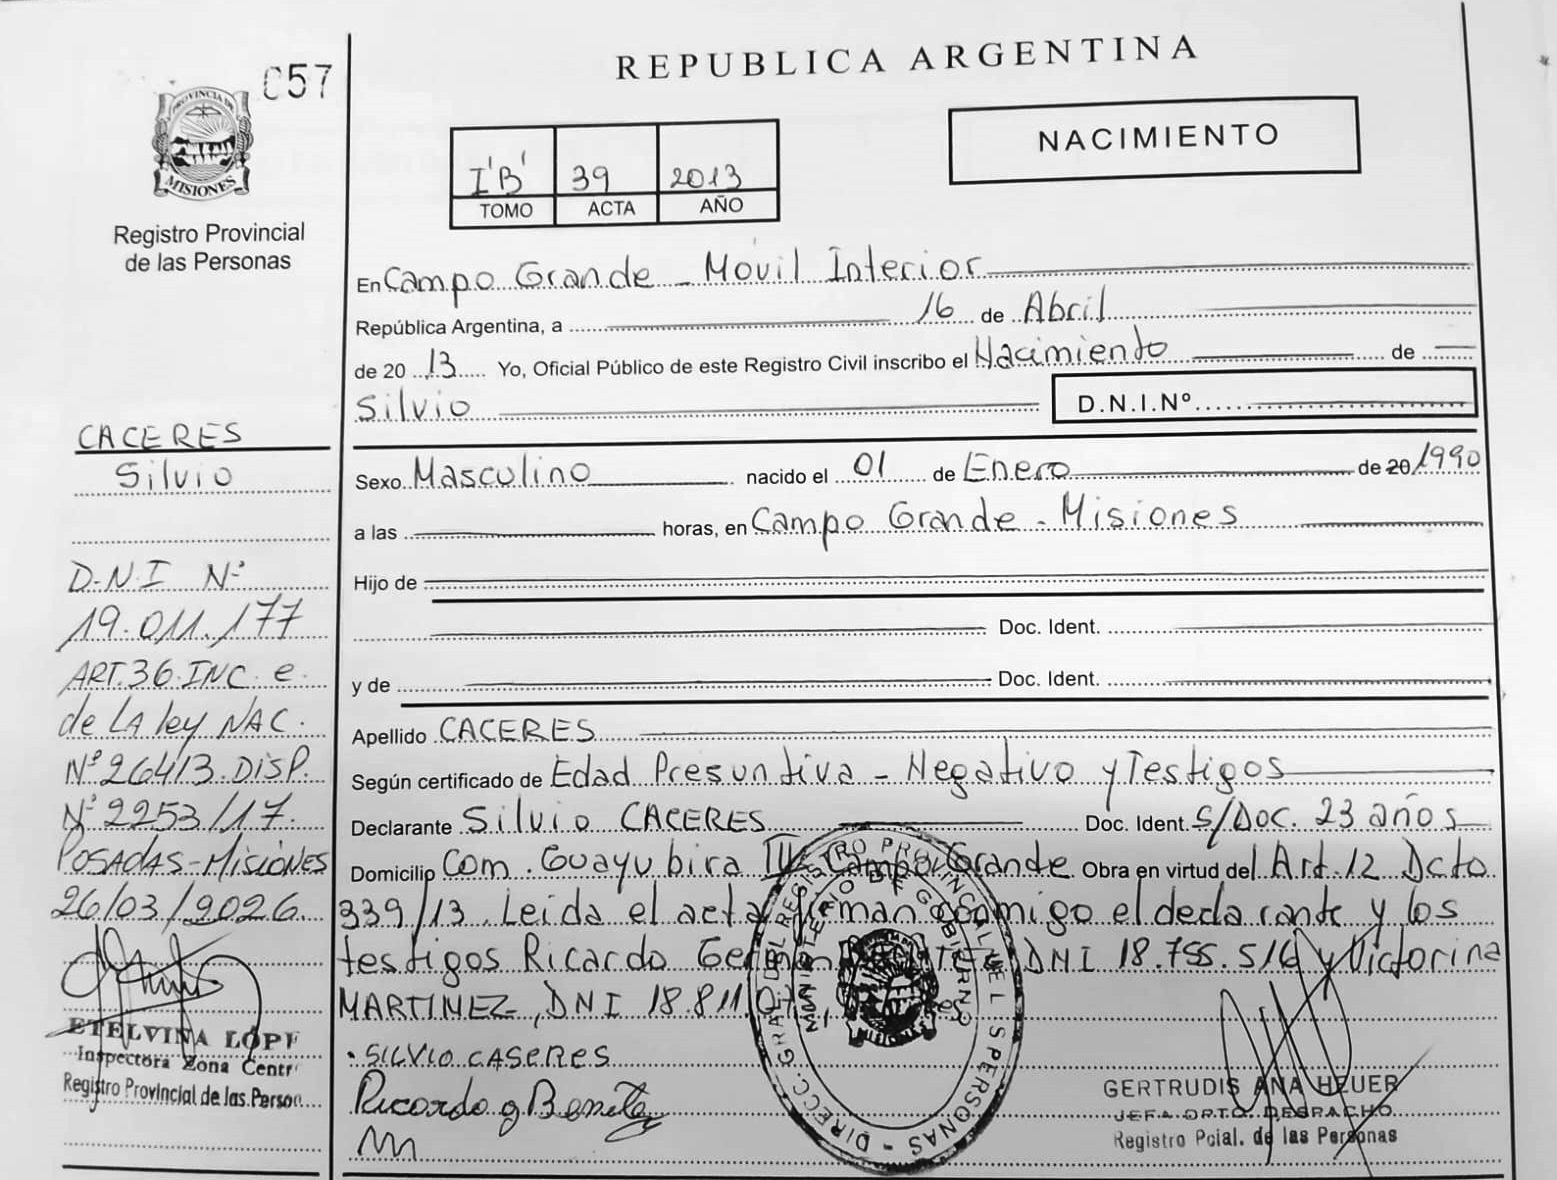 C57
PROVINCIA DE
MISIONES
Registro Provincial
de las Personas
REPUBLICA ARGENTINA
NACIMIENTO
I'B' 39 2013
TOMO ACTA AÑO
En Campo Grande - Movil Interior
República Argentina, a 16 de Abril
de 20 13 Yo, Oficial Público de este Registro Civil inscribo el Nacimiento de
Silvio D.N.I.Nº
Sexo Masculino nacido el 01 de Enero de 20 1990
a las horas, en Campo Grande - Misiones
Hijo de
Doc. Ident.
y de Doc. Ident.
Apellido CACERES
Según certificado de Edad Presuntiva - Negativo y Testigos
Declarante Silvio CACERES Doc. Ident. S/Doc. 23 años
Domicilio Com. Guayubira Campo Grande. Obra en virtud del Art. 12 Dcto
339/13. Leida el acta firman conmigo el declarante y los
testigos Ricardo DNI 18.755.516 y Victorina
MARTINEZ, DNI 18.811.
SILVIO CASERES
Ricardo g Benitez
CACERES
Silvio
D.N.I Nº
19.011.177
ART.36.INC. e.
de LA ley NAC.
Nº 26413.DISP.
Nº 2253/17.
POSADAS-MISIONES
26/03/2026.
ETELVINA LOPE
Inspectora Zona Centr
Registro Provincial de las Person
DIRECC. GRAL. DEL REGISTRO PROVINCIAL DE LAS PERSONAS
MINISTERIO DE GOBIERNO
GERTRUDIS ANA HEUER
JEFA DPTO. DESPACHO
Registro Pcial. de las Personas